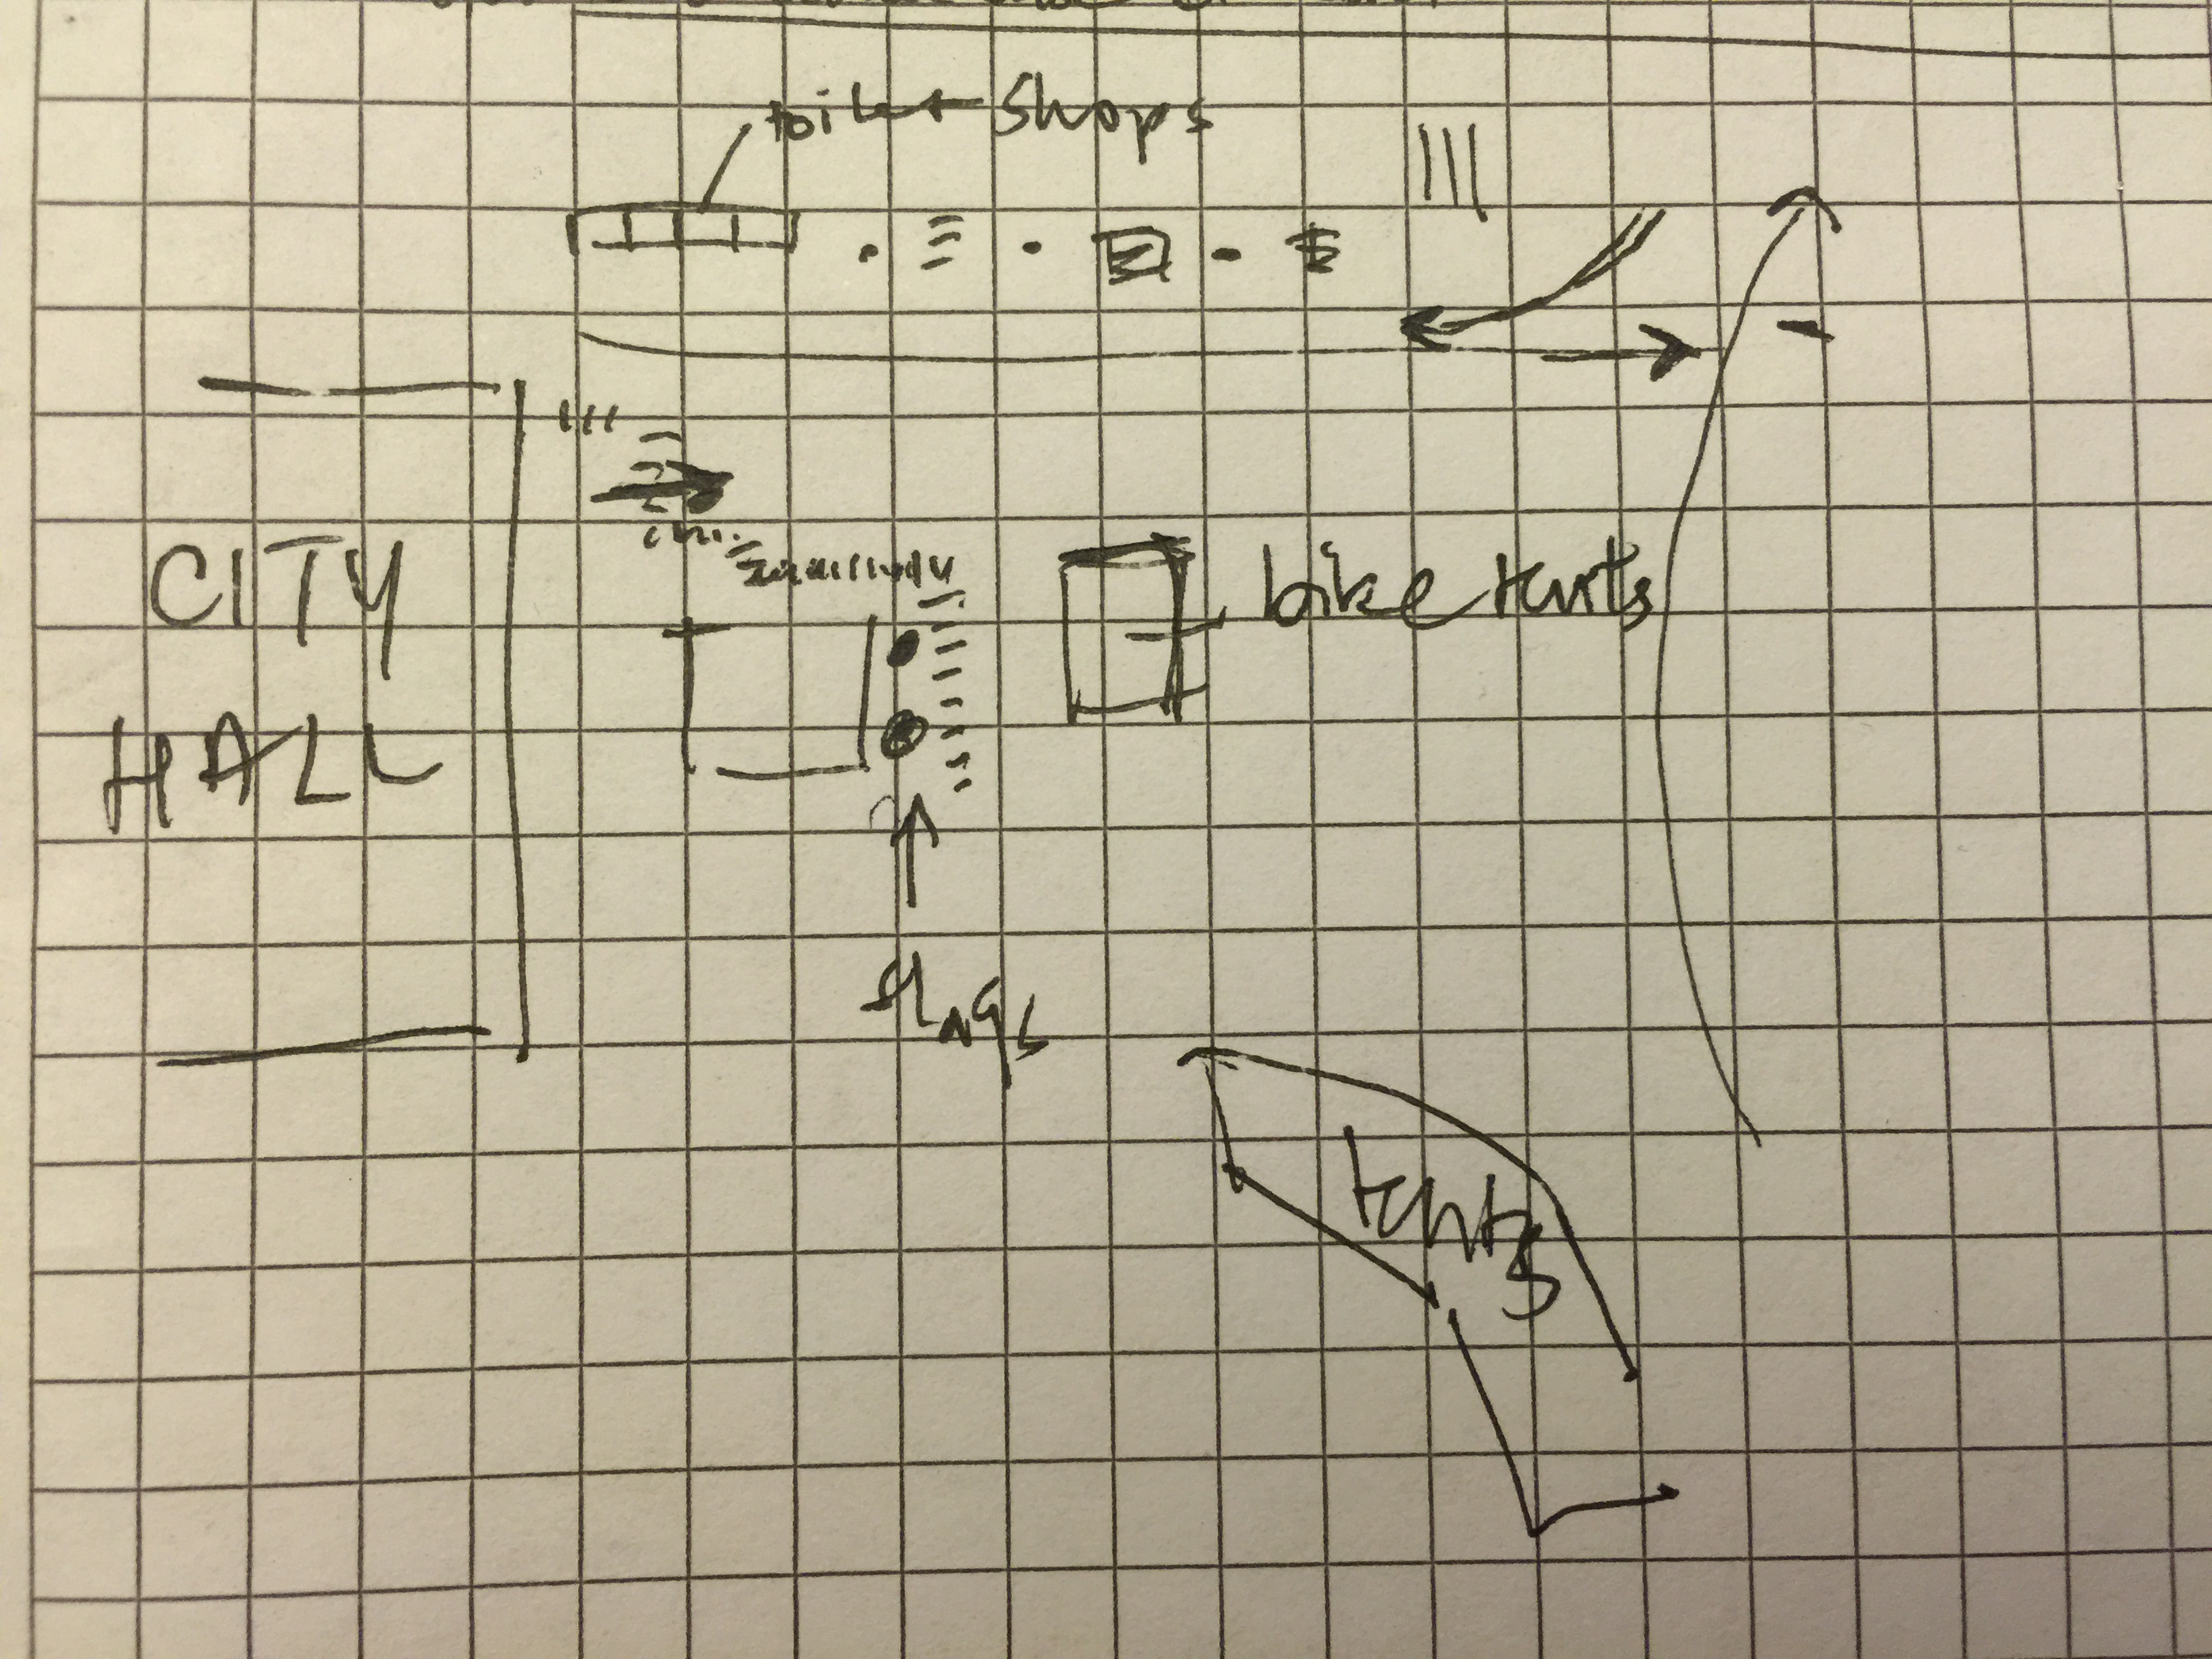 toilet shops
CITY
HALL
bike tents
flags
tents